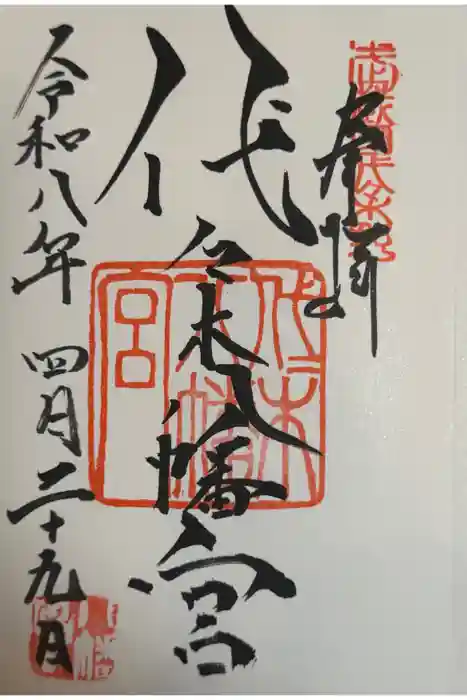 奉拝
代々木八幡宮
代々木八幡宮
令和八年 四月二十九日